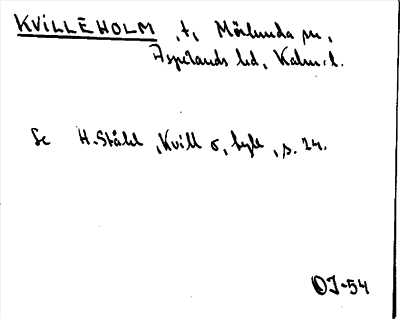 KVILLEHOLM, t, Mörlunda sn,
Aspelands hd, Kalm. l.
Se H. Ståhl, Kvill o, tyll, s. 24.
OJ-54